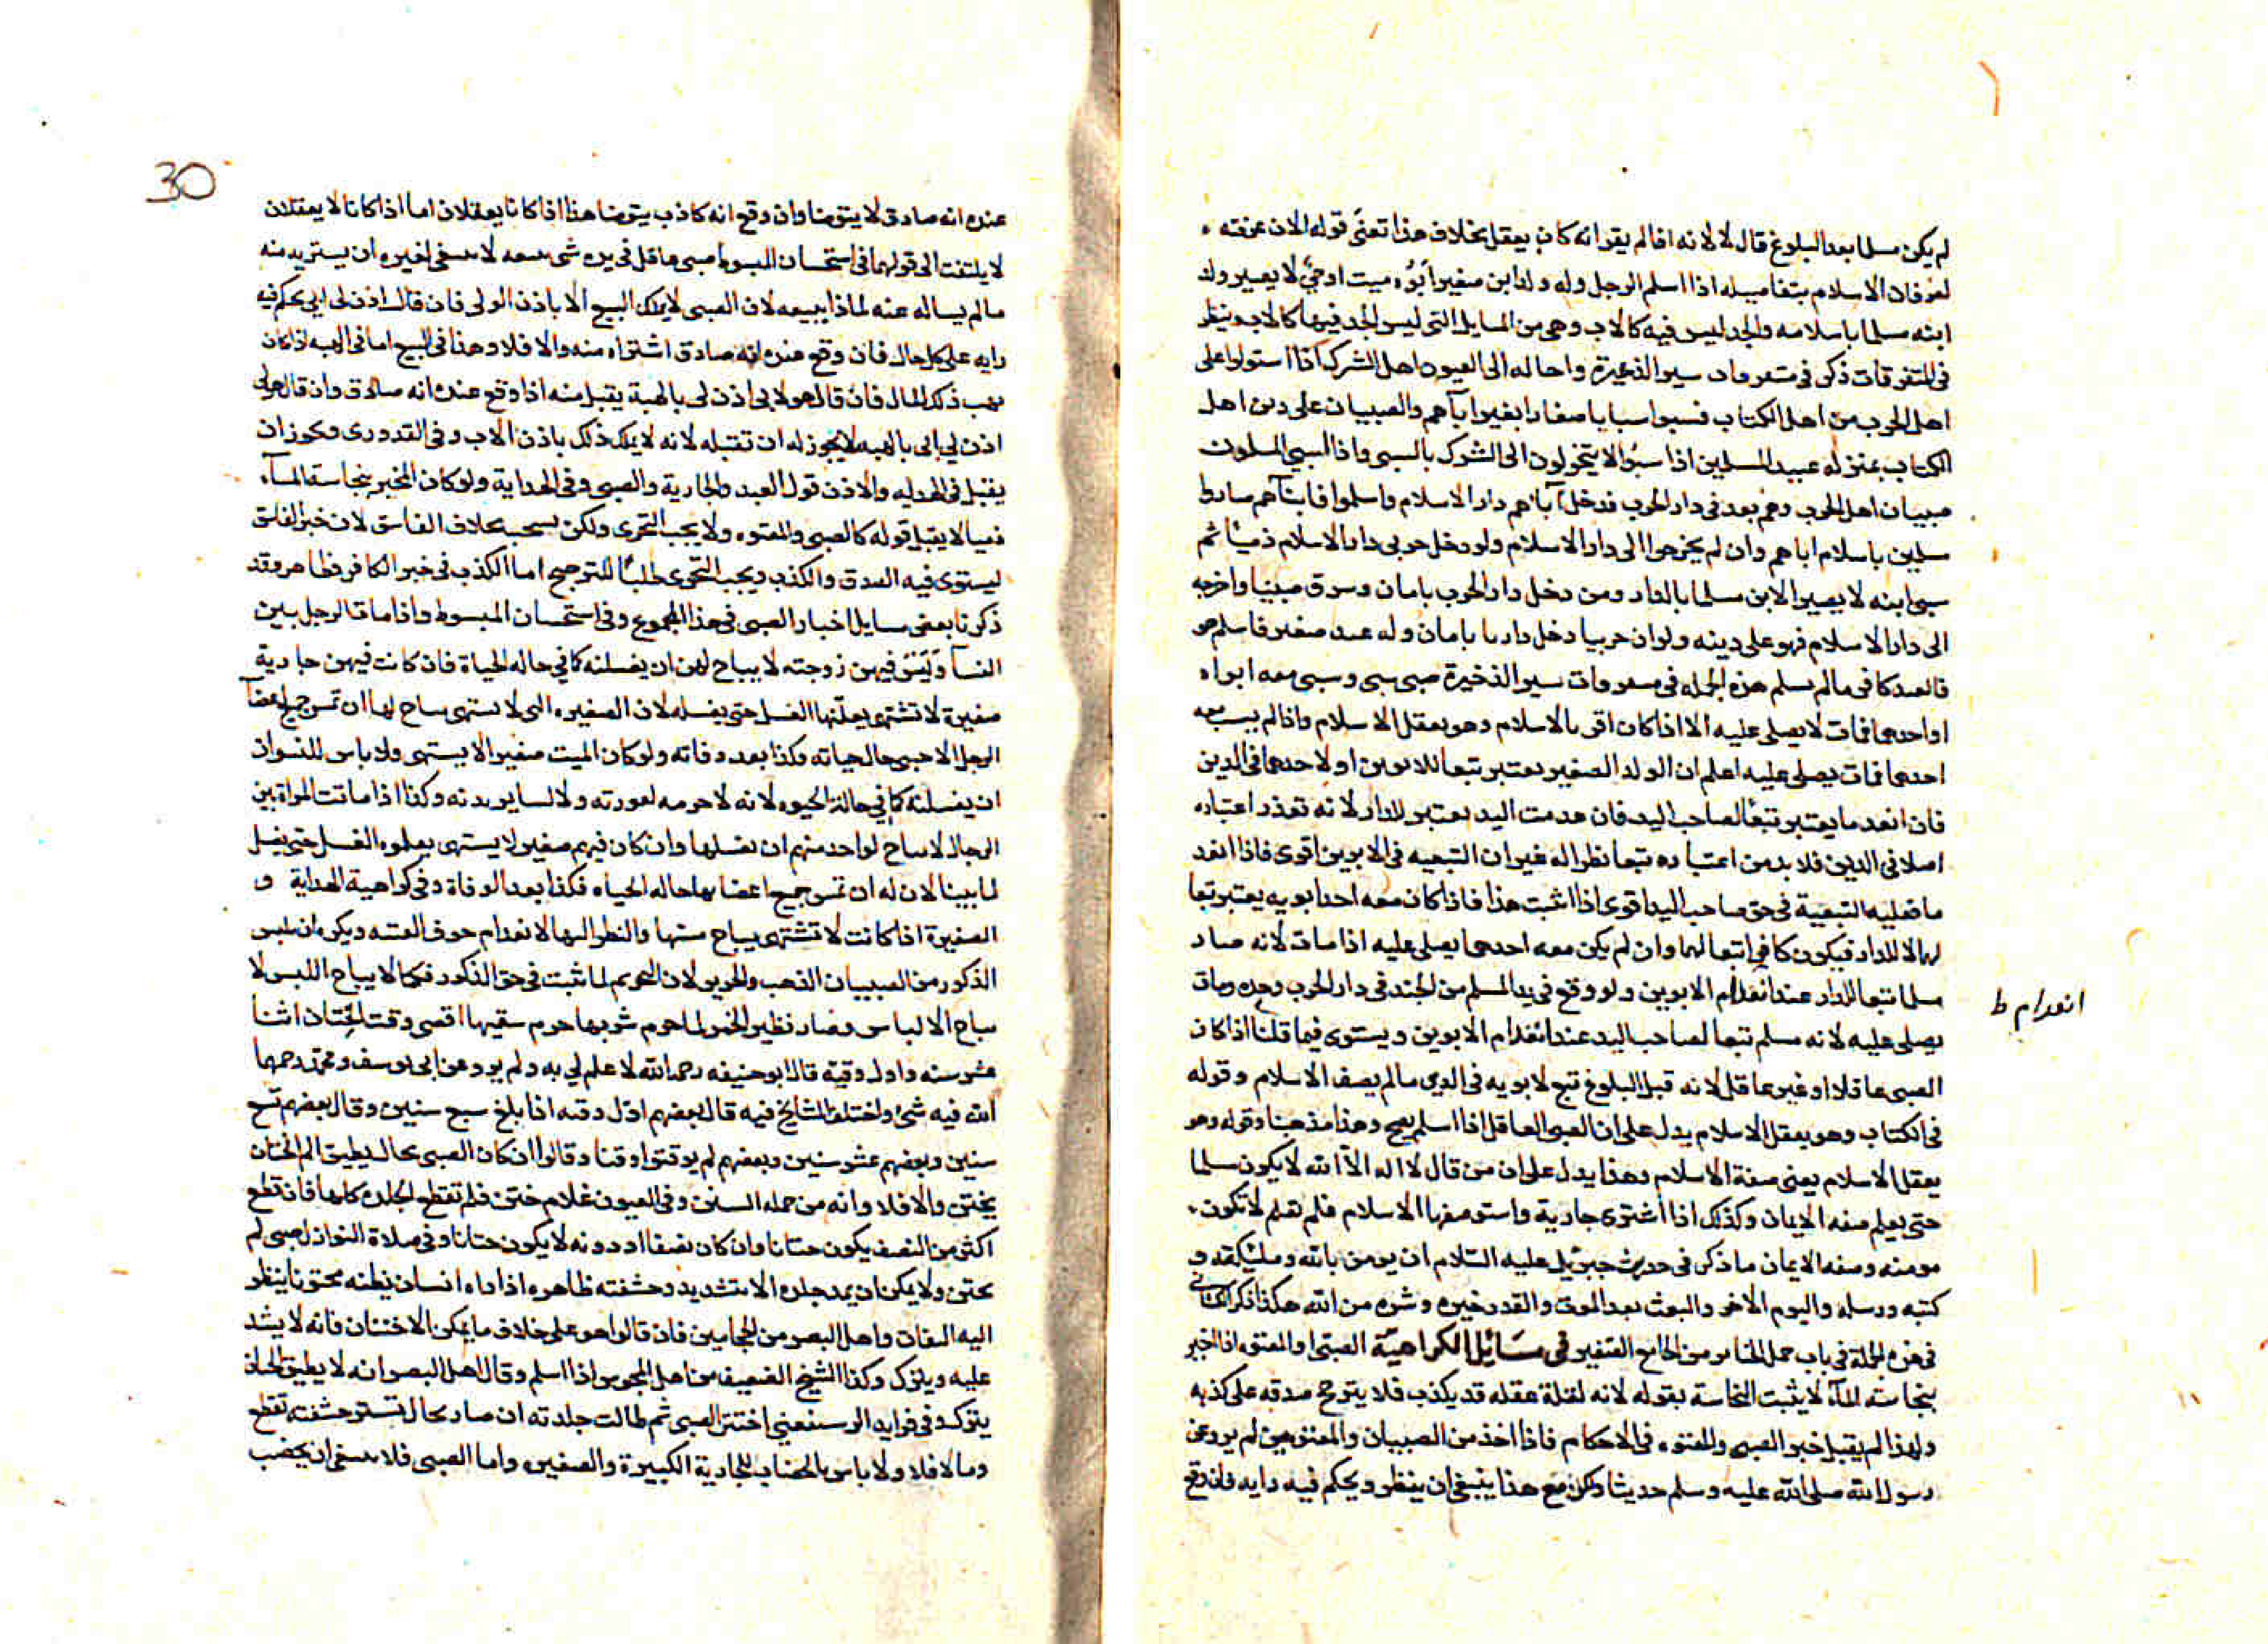 لم يكن مسلما بعد البلوغ قال لا لانه اذا لم يقر انه كان يعقل بخلاف هذا تعنى قوله الان عرفته
لعرفان الاسلام بتفاصيله اذا اسلم الرجل وله ولد ابن صغير ابوه ميت او حي لا يصير ولد
ابنه مسلما باسلامه والجد ليس فيه كالاب وهي من المسايل التي ليس الجد فيها كالاب وينظر
في المتفرقات ذكر في متفرقات سير الذخيرة واحاله الى العيون اهل الشرك اذا استولوا على
اهل الحرب من اهل الكتاب فسبوا سبايا صغارا بغير ابآهم والصبيان على دين اهل
الكتاب بمنزله عبيد المسلمين اذا سبوا لا يتحولون الى الشرك بالسبى واذا سبي المسلمون
صبيان اهل الحرب وهم بعد في دار الحرب فدخل آباهم دار الاسلام واسلموا فابنآهم صاروا
مسلمين باسلام اباهم وان لم يخرجوا الى دار الاسلام ولو دخل حربى دار الاسلام ذميا ثم
سبى ابنه لا يصير الابن مسلما بالدار ومن دخل دار الحرب بامان وسرق صبيا واخرجه
الى دار الاسلام فهو على دينه ولو ان حربيا دخل دارنا بامان وله عبد صغير فاسلم هو
فالعبد كافر مالم يسلم هذه الجمله في متفرقات سير الذخيرة صبى سبى وسبى معه ابواه
او احدهما فمات لا يصلى عليه الا اذا كان اقر بالاسلام وهو يعقل الاسلام واذا لم يسب معه
احدهما فمات يصلى عليه اعلم ان الولد الصغير يعتبر تبعا للابوين او لاحدهما في الدين
فان انعدما يعتبر تبعا لصاحب اليد فان عدمت اليد يعتبر للدار لانه تعذر اعتباره
اصلا في الدين فلا بد من اعتباره تبعا نظرا له غير ان التبعيه في الابوين اقوى فاذا انعد
ما فعليه التبعية في حق صاحب اليد اقوى اذا اثبت هذا فاذا كان معه احد ابويه يعتبر تبعا
لهما لا للدار فيكون كافرا تبعا لهما وان لم يكن معه احدهما يصلى عليه اذا مات لانه صار
مسلما تبعا للدار عند انعدام الابوين ولو وقع في يد المسلم من الجند في دار الحرب وحده ومات
انعدام ط
يصلى عليه لانه مسلم تبعا لصاحب اليد عند انعدام الابوين ويستوى فيما قلنا اذا كان
الصبى عاقلا او غير عاقل لانه قبل البلوغ تبع لابويه في الدين مالم يصف الاسلام وقوله
في الكتاب وهو يعقل الاسلام يدل على ان الصبي العاقل اذا اسلم يصح وهذا مذهبنا وقوله وهو
يعقل الاسلام يعنى صفة الاسلام وهذا يدل على ان من قال لا اله الا الله لا يكون مسلما
حتى يعلم صفه الايمان وكذلك اذا اشترى جارية واستوصفها الاسلام فلم تعلم لا تكون
مومنه وصفه الايمان ما ذكر في حديث جبرئيل عليه السلام ان يومن بالله وملئكته و
كتبه ورسله واليوم الاخر والبعث بعد الموت والقدر خيره وشره من الله هكذا ذكر
في هذه الجملة في باب حمل الجنائز من الجامع الصغير في مسائل الكراهية الصبى او المعتوه اذا اخبر
بنجاسته المآء لا يثبت النجاسة بقوله لانه لقلة عقله قد يكذب فلا يترجح صدقه على كذبه
ولهذا لم يقبل خبر الصبي والمعتوه في الاحكام فاذا اخذ من الصبيان والمعتوهين لم يرو عن
رسول الله صلى الله عليه وسلم حديثا ولكن مع هذا ينبغى ان ينظر ويحكم فيه رايه فان وقع
30
عنده انه صادق لا يتوضا وان وقع انه كاذب يتوضا هذا اذا كانا يعقلان اما اذا كانا لا يعقلان
لا يلتفت الى قولهما في استحسان المبسوط صبى عاقل في يده شى يبيعه لا ينبغى لغيره ان يشتريه منه
مالم يساله عنه لماذا يبيعه لان الصبى لا يملك البيع الا باذن الولى فان قال اذن لى ابى يحكم فيه
رايه على كل حال فان وقع عنده انه صادق اشتراه منه والا فلا وهذا في البيع اما في الهبه اذا كان
يهب ذلك المال فان قال هو لابى اذن لى بالهبة يقبل منه اذا وقع عنده انه صادق وان قال هو لى
اذن لي ابى بالهبه لا يجوز له ان تقبله لانه لا يملك ذلك باذن الاب وفى القدورى ويجوز ان
يقبل في الهديه والاذن قول العبد والجارية والصبى وفى الهداية ولو كان المخبر بنجاسة المآء
صبيا لا يقبل قوله كالصبى والمعتوه ولا يجب التحرى ولكن يستحب بخلاف الفاسق لان خبر الفاسق
يستوى فيه الصدق والكذب ويجب التحرى طلبا للترجيح اما الكذب في خبر الكافر فظاهر وقد
ذكرنا بعض مسايل اخبار الصبى في هذا المجموع وفي استحسان المبسوط واذا مات الرجل بين
النسآ وليس فيهن زوجته لا يباح لهن ان يغسلنه كما في حاله الحياة فان كانت فيهن جارية
صغيرة لا تشتهى يعلمنها الغسل حتى يغسله لان الصغيره التى لا تشتهى يباح لها ان تمس جميع اعضآ
الرجل الاجنبى حال حياته وكذا بعد وفاته ولو كان الميت صغيرا لا يشتهى ولا باس للنسوان
ان يغسلنه كما في حالة الحيوه لانه لا حرمه لعورته ولا لساير بدنه وكذا اذا ماتت المراة بين
الرجال لا يباح لواحد منهم ان يغسلها وان كان فيهم صغير لا يشتهى يعلموه الغسل حتى يغسل
لما بينا لان له ان تمس جميع اعضائها حاله الحياه فكذا بعد الوفاة وفى كراهية الهداية و
الصغيرة اذا كانت لا تشتهى يباح مسها والنظر اليها لانعدام خوف الفتنه ويكره ان يلبس
الذكور من الصبيان الذهب والحرير لان التحريم لما ثبت في حق الذكور فكما لا يباح اللبس لا
يباح الالباس وصار نظير الخمر لما حرم شربها حرم سقيها اقصى وقت الختان اثنا
عشر سنه واول وقته قال ابو حنيفه رحمه الله لا علم لي به ولم يرو عن ابى يوسف ومحمد رحمهما
الله فيه شئ واختلف المشايخ فيه قال بعضهم اول وقته اذا بلغ سبع سنين وقال بعضهم تسع
سنين وبعضهم عشر سنين وبعضهم لم يوقتوا وقتا وقالوا ان كان الصبى بحال يطيق الم الختان
يختن والا فلا وانه من جمله السنن وفي العيون غلام ختن فلم تقطع الجلده كلها فان قطع
اكثر من النصف يكون ختانا وان كان نصفا او دونه لا يكون ختانا وفي صلاة النوازل صبى لم
يختن ولا يمكن ان يمد جلده الا بتشديد وحشفته ظاهره اذا راه انسان يظنه مختونا ينظر
اليه الثقات واهل البصر من الحجامين فان قالوا هو على خلاف ما يمكن الاختتان فانه لا يشدد
عليه ويترك وكذا الشيخ الضعيف من اهل المجوس اذا اسلم وقال اهل البصر انه لا يطيق الختان
يترك وفى فوايد الرستغفنى اختتن الصبى ثم طالت جلدته ان صار بحال تستر حشفته تقطع
ومالا فلا ولا باس بالخضاب للجارية الكبيرة والصغيره واما الصبى فلا ينبغى ان يخضب